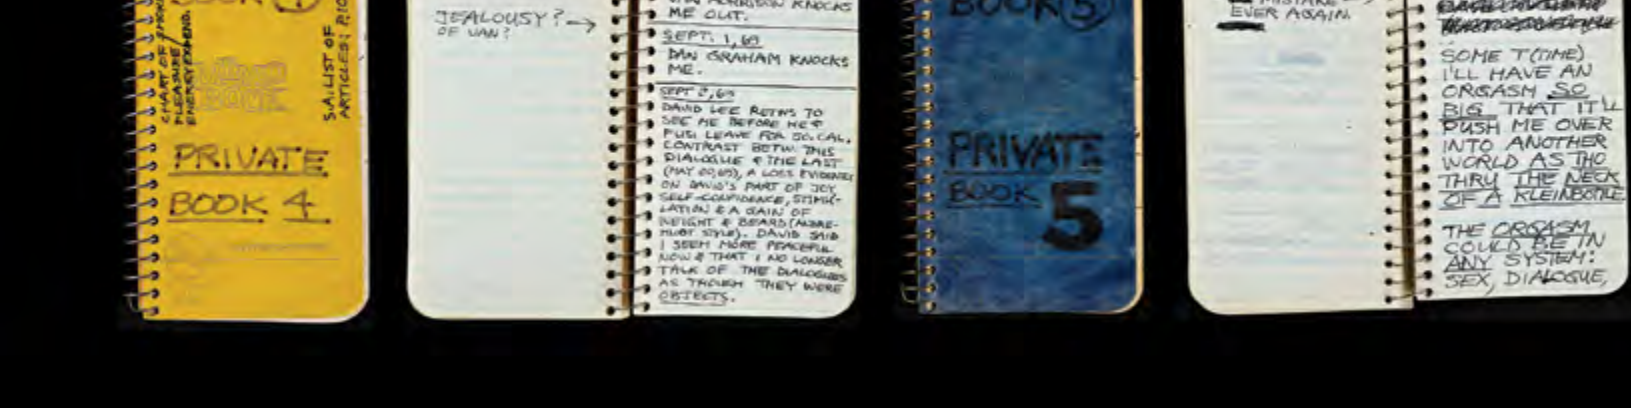 BOOK 4
CHART OF
PLEASURE/
ENERGY EXPEND.
MEMO
BOOK
S.A. LIST OF
ARTICLES: P.10
PRIVATE
BOOK 4
JEALOUSY? →
OF VAN?
KNOCKS
ME OUT.
SEPT. 1, 69
DAN GRAHAM KNOCKS
ME.
SEPT 2, 69
DAVID LEE RETNS TO
SEE ME BEFORE HE &
LEAVE FOR SO. CAL.
CONTRAST BETW. THIS
DIALOGUE & THE LAST
(MAY 20, 69), A LOSS EVIDENTLY
ON DAVID'S PART OF JOY,
SELF-CONFIDENCE, STIMU-
LATION & A GAIN OF
WEIGHT & BEARD
STYLE). DAVID SAID
I SEEM MORE PEACEFUL
NOW & THAT I NO LONGER
TALK OF THE DIALOGUES
AS THOUGH THEY WERE
OBJECTS.
BOOK 5
PRIVATE
BOOK 5
MISTAKE →
EVER AGAIN.
SOME T (TIME)
I'LL HAVE AN
ORGASM SO
BIG THAT IT'LL
PUSH ME OVER
INTO ANOTHER
WORLD AS THO
THRU THE NECK
OF A KLEINBOTTLE.
THE ORGASM
COULD BE IN
ANY SYSTEM:
SEX, DIALOGUE,